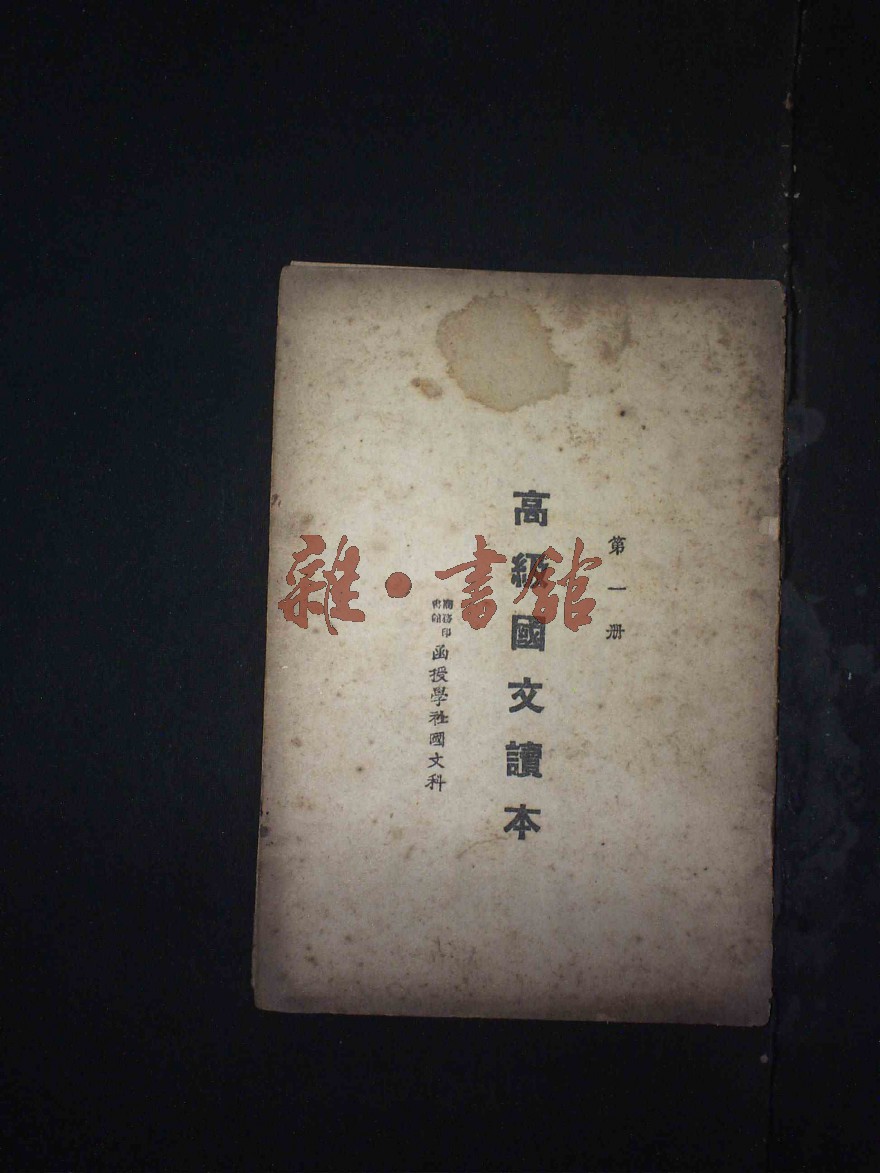 第一册
高級國文讀本
商務印書館函授學社國文科
雜·書館